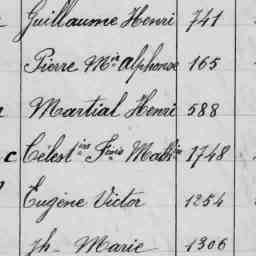 Guillaume Henri 741
Pierre Mie Alphonse 165
Martial Henri 588
c Célestin Fois Mathin 1748
Eugène Victor 1254
Jh Marie 1306